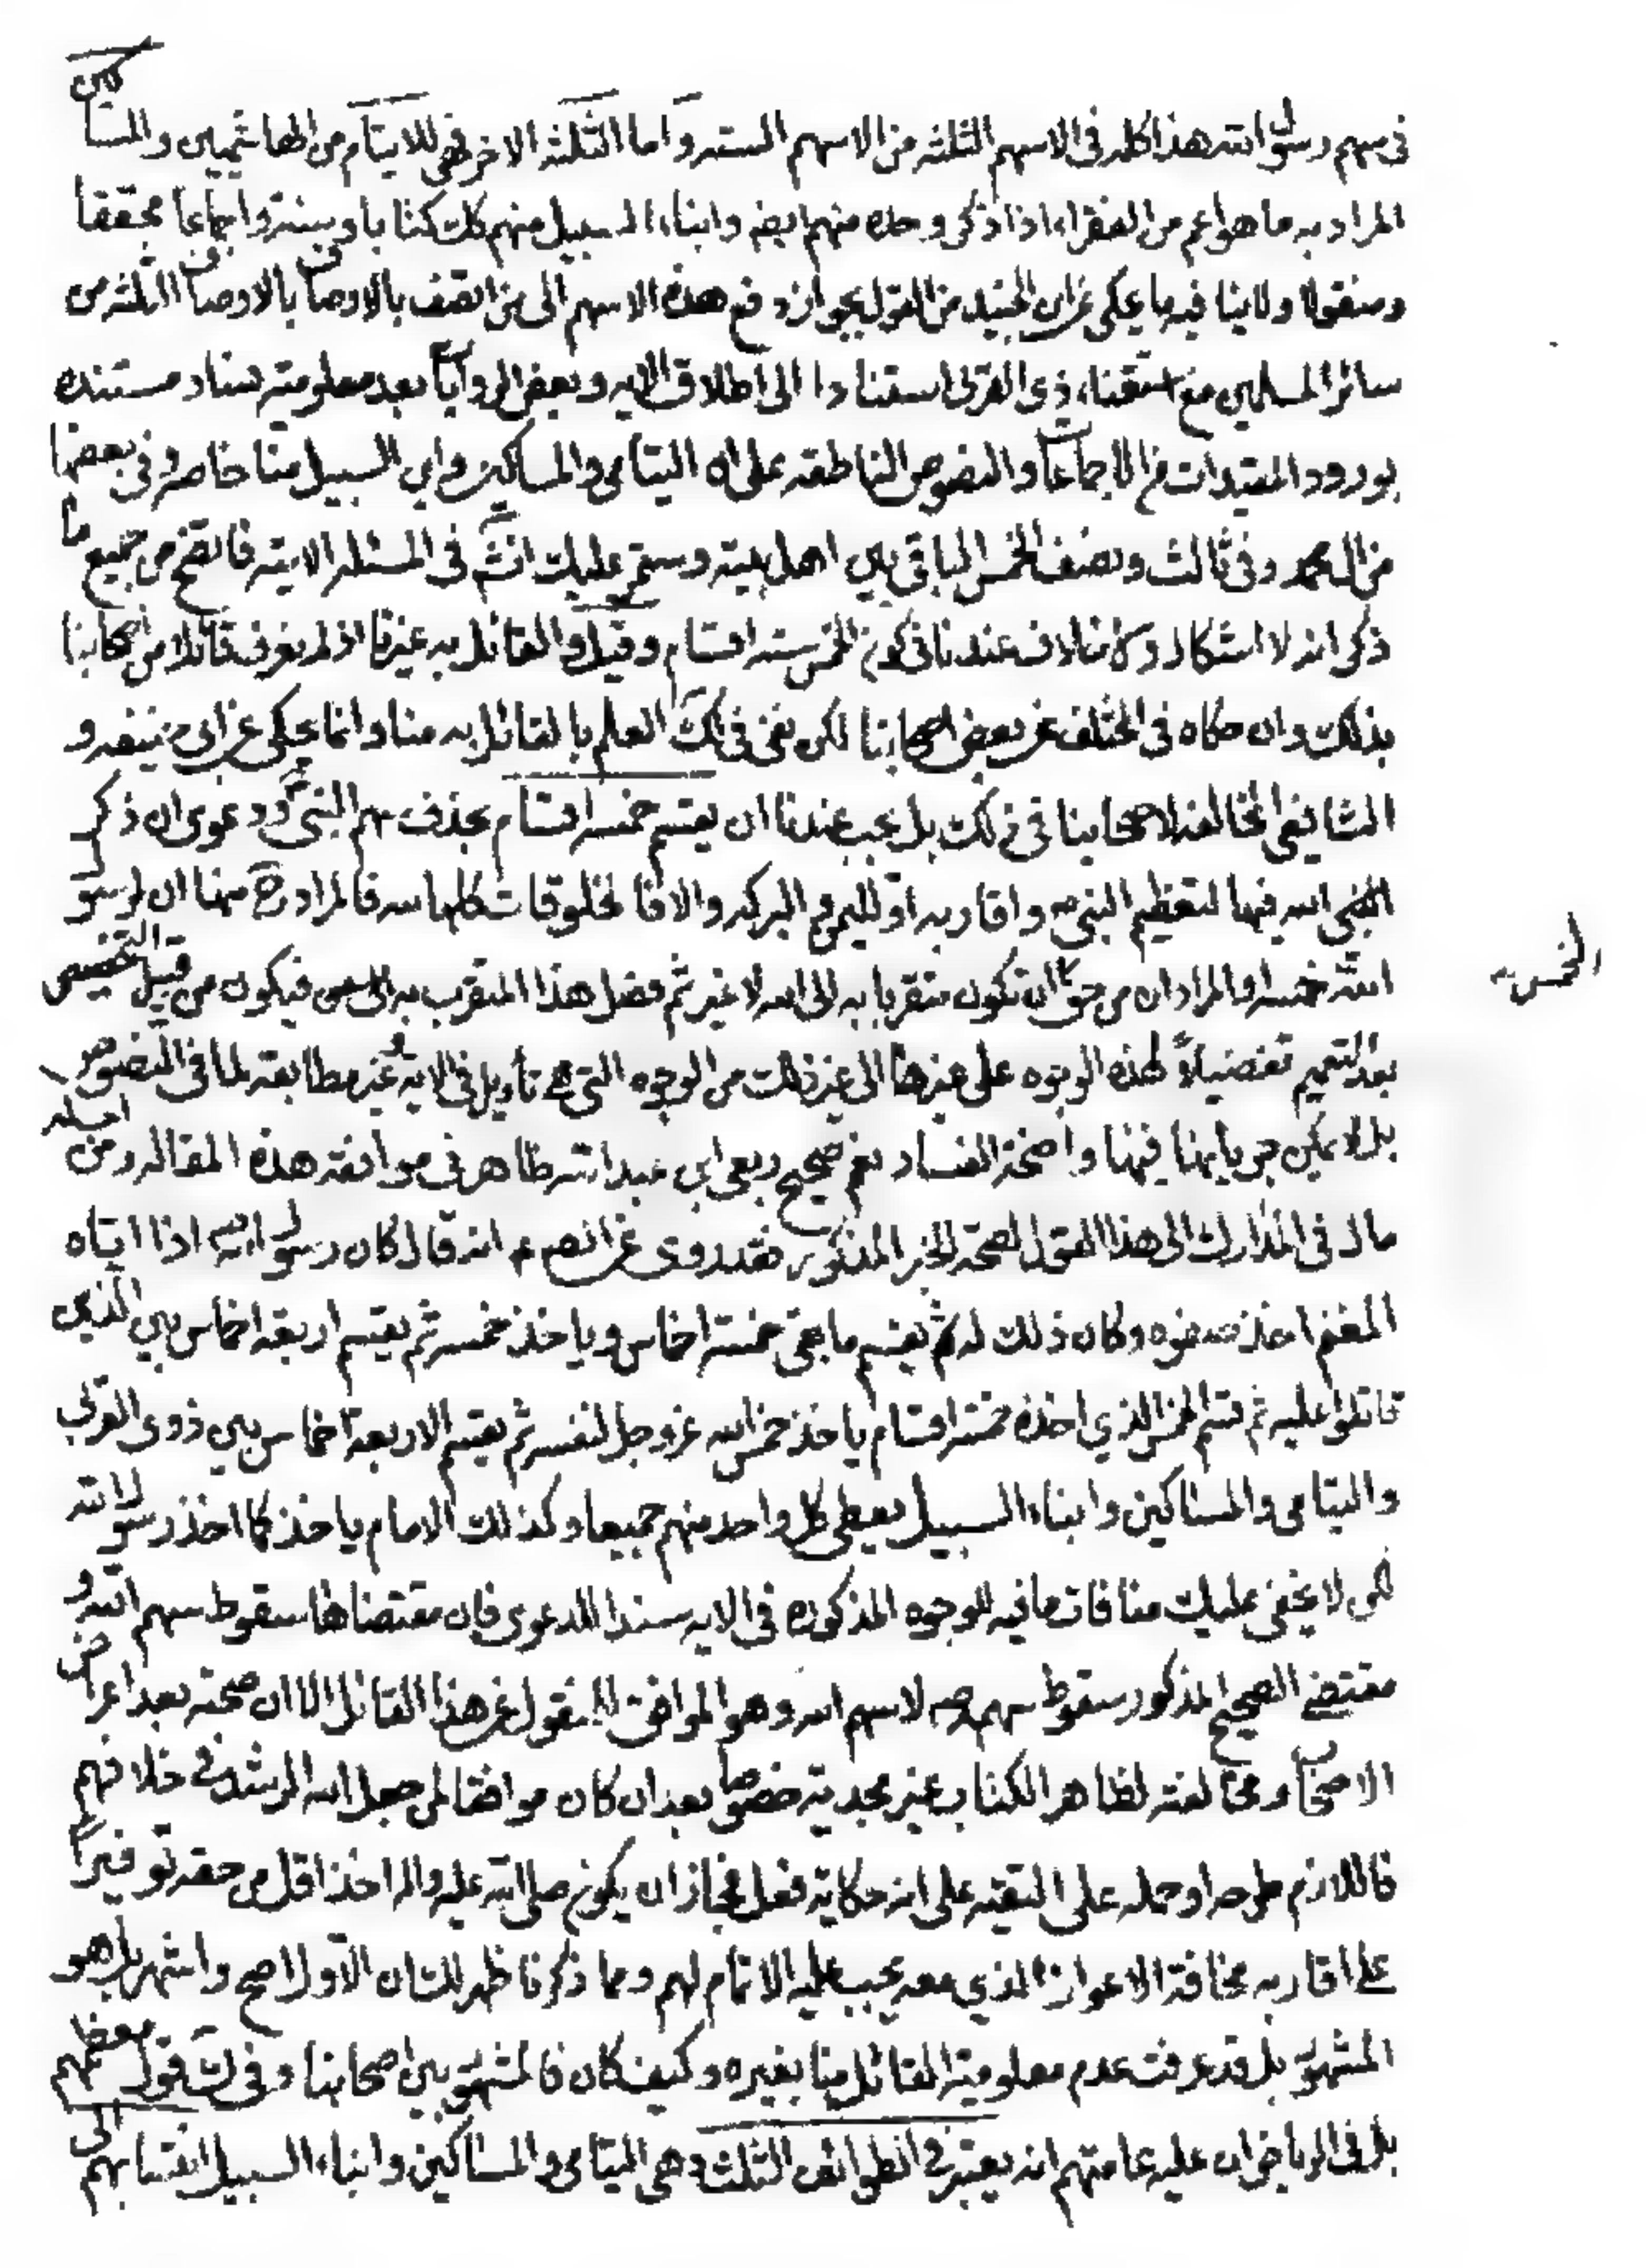 في سهم رسول الله هذا كله في الاسهم الثلثه من الاسهم السته واما الثلثه الاخر فهي للايتام من الهاشميين والمساكين
المراد به ما هو اعم من الفقراء اذا ذكر وحده منهم ايضه وابناء السبيل منهم كك كتابا وسنة واجماعا محققا
ومنقولا ولا ينافيه ما يحكى عن ابن الجنيد من القول بجواز دفع هذه الاسهم الى من اتصف بالاوصاف الثلثه من
سائر المسلمين مع استغناء ذي القربى استنادا الى اطلاق الايه وبعض الروايات بعد معلومية فساد مستنده
بورود المقيدات من الاجماعات والنصوص الناطقه على ان اليتامى والمساكين وابن السبيل منا خاصه وفي بعضها
من ال محمد وفي ثالث ونصف الخمس الباقي بين اهل بيته وستمر عليك انشم في المسئله الاتيه فاتضح من جميع ما
ذكر انه لا اشكال ولا خلاف عندنا في كون الخمس سته اقسام وقيل والقائل به غيرنا اذ لم نعرف قائلا من اصحابنا
بذلك وان حكاه في المختلف عن بعض اصحابنا لكن نفى في لك العلم بالقائل به منا وانما يحكى عن ابي حنيفه و
الشافعي المخالفه لاصحابنا في ذلك بل يجب عندنا ان يقسم خمسه اقسام بحذف سهم النبي ودعوى ان ذكر
النبي الله فيها لتعظيم النبي صه واقاربه او لليمن والبركه والا فالمخلوقات كلها لله فالمراد ح منها ان لرسول
الله خمسه والمراد ان من حق ان تكون متقربا به الى الله لا غير ثم فضل هذا المتقرب به الى فيكون من قبيل التخصيص
الخمس صه
بعد التعميم تفضيلا لهذه الوجوه على غيرها الى غير ذلك من الوجوه التي هي تأويل في الايه غير مطابقه لما في النصوص
بل لا يمكن جريانها فيها واضحة الفساد نعم صحيح ربعي ابي عبد الله ظاهر في موافقه هذه المقاله ومن
مال في المدارك الى هذا القول لصحة الخبر المذكور فقد روى عن الصم ع انه قال كان رسول الله صه اذا اتاه
المغنم اخذ صفوه وكان ذلك له ثم يقسم ما بقي خمسة اخماس وياخذ خمسه ثم يقسم اربعة اخماس بين الذين
قاتلوا عليه ثم قسم الخمس الذي اخذه خمسة اقسام ياخذ خمس الله عز وجل لنفسه ثم يقسم الاربعة اخماس بين ذوي القربى
واليتامى والمساكين وابناء السبيل يعطى كل واحد منهم جميعا وكذلك الامام ياخذ كما اخذ رسول الله
لكن لا يخفى عليك منافات ما فيه للوجوه المذكوره في الايه سندا للدعوى فان مقتضاها سقوط سهم الله و
مقتضى الصحيح المذكور سقوط سهم صه لا سهم الله وهو الموافق للمنقول عن هذا القائل الا ان صحته بعد اعراض
الاصحاب ومخالفته لظاهر الكتاب غير مجديه خصوصا بعد ان كان موافقا لمن جعل الله الرشد في خلافهم
فاللازم طرحه او حمله على التقيه على انه حكاية فعل فجاز ان يكون صلى الله عليه واله اخذ اقل من حقه توفيرا
على اقاربه مخافة الاعواز الذي معه يجب عليه الاتمام لهم ومما ذكرنا ظهر لك ان الاول اصح واشهر بل هو
المشهور بل قد عرفت عدم معلومية القائل منا بغيره وكيف كان فالمشهور بين اصحابنا وفي لك قول معظمهم
بل في الرياض ان عليه عامتهم انه يعتبر في الطوائف الثلث وهي اليتامى والمساكين وابناء السبيل انتسابهم الى